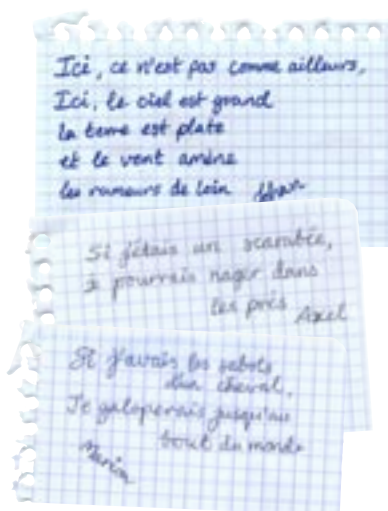 Ici, ce n'est pas comme ailleurs,
Ici, le ciel est grand
la terre est plate
et le vent amène
les rumeurs de loin
Si j'étais un scarabée,
je pourrais nager dans
les prés
Axel
Si j'avais les sabots
d'un cheval,
Je galoperais jusqu'au
bout du monde
Marion